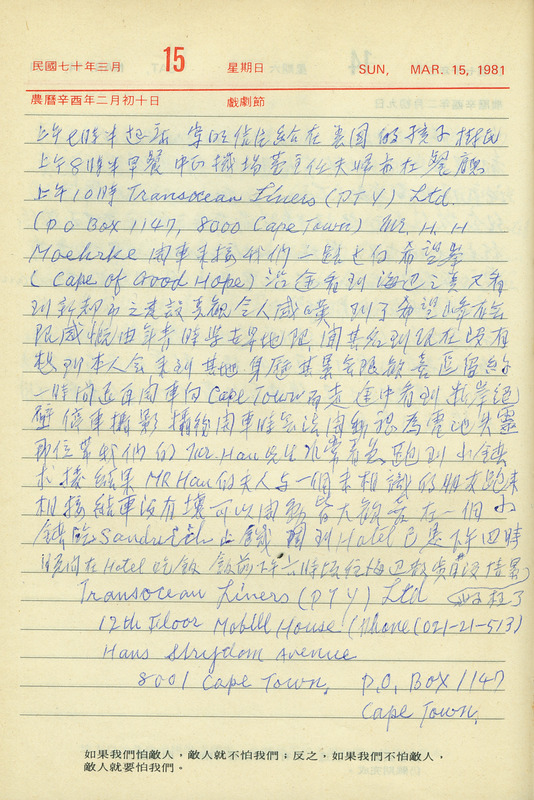 民國七十年三月 15 星期日 SUN, MAR. 15, 1981
農曆辛酉年二月初十日 戲劇節
上午七時半起床 寫明信片給在美国的孩子
上午8時半早餐 主任夫婦亦在餐廳
上午10時 Transocean Liners (PTY) Ltd.
(P O Box 1147, 8000 Cape Town) Mr. H. H
Moehrke 開車來接我們一起去 希望峯
(Cape of Good Hope) 沿途看到海邊之美 又看
到新都市之建設美觀令人感嘆 到了希望峰有無
限感慨由年青時學世界地理 聞其名到現在沒有
想到本人會來到其地 身歷其景無限歡喜 逗留約
一時間返再開車向 Cape Town 而走 途中看到 岸絕
壁 停車攝影 攝後開車時無法開動 認為電池失靈
那位帶我們的 Mr. Han 先生非常着急 跑到小鎮
求援結果 MR Han 的夫人与一個未相識的朋友跑來
相接 結車沒有壞可以開動 皆大歡喜 在一個小
鎮吃 Sandwich 止餓 開到 Hotel 已是下午四時
晚间在 Hotel 吃飯 飯前下午六時 往海边散
Transocean Liners (PTY) Ltd
12th Floor Mobill House (Phone (021-21-513)
Hans Strydom Avenue
8001 Cape Town, P.O, Box 1147
Cape Town,
如果我們怕敵人，敵人就不怕我們；反之，如果我們不怕敵人，
敵人就要怕我們。